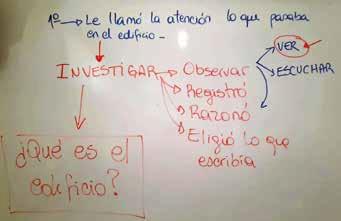 1º → Le llamó la atención lo que pasaba
en el edificio -
INVESTIGAR → Observar → VER
→ ESCUCHAR
Registró
Razonó
Eligió lo que
escribía
¿Qué es el
edificio?